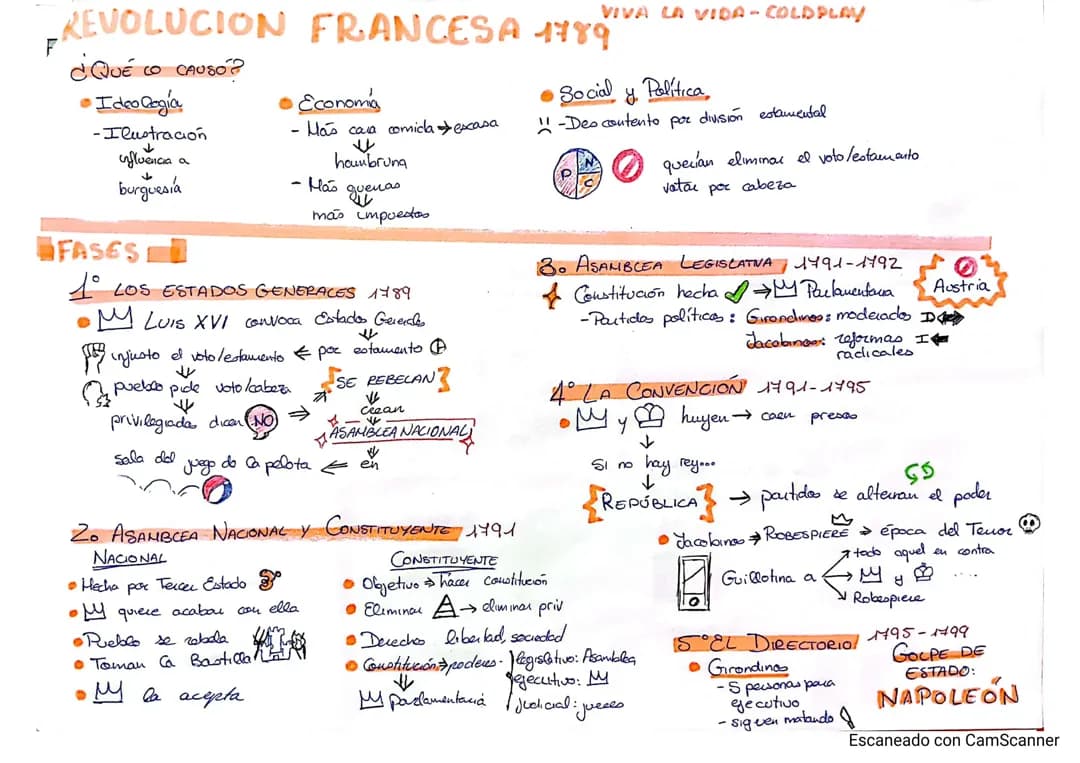 REVOLUCION FRANCESA 1789
VIVA LA VIDA - COLDPLAY
F
¿QUÉ LO CAUSÓ?
Ideología
- Ilustración
influencia a
burguesía
Economía
- Más cara comida → escasa
hambruna
- Más guerras
más impuestos
Social y Política
- Descontento por división estamental
P N C
querían eliminar el voto/estamento
votar por cabeza
FASES
1º LOS ESTADOS GENERALES 1789
LUIS XVI convoca Estados Generales
injusto el voto/estamento ← por estamento
pueblo pide voto/cabeza
privilegiados dicen NO
SE REBELAN
crean
ASAMBLEA NACIONAL
en
sala del juego de la pelota
2º ASAMBLEA NACIONAL Y CONSTITUYENTE 1791
NACIONAL
Hecha por Tercer Estado 3º
quiere acabar con ella
Pueblo se rebela
Toman la Bastilla
la acepta
CONSTITUYENTE
Objetivo → hacer constitución
Eliminar → eliminar priv
Derechos libertad, sociedad
Constitución → poderes
legislativo: Asamblea
ejecutivo:
Judicial: jueces
parlamentaria
3º ASAMBLEA LEGISLATIVA 1791-1792
Austria
Constitución hecha → Parlamentaria
- Partidos políticos: Girondinos: moderados D
Jacobinos: reformas I
radicales
4º LA CONVENCIÓN 1791-1795
y huyen → caen presos
Si no hay rey...
REPÚBLICA → partidos se alternan el poder
Jacobinos → ROBESPIERE → época del Terror
Guillotina a
todo aquel en contra
y ....
Robespiere
5º EL DIRECTORIO 1795-1799
Girondinos
- 5 personas para
ejecutivo
- siguen matando
GOLPE DE
ESTADO:
NAPOLEÓN
Escaneado con CamScanner